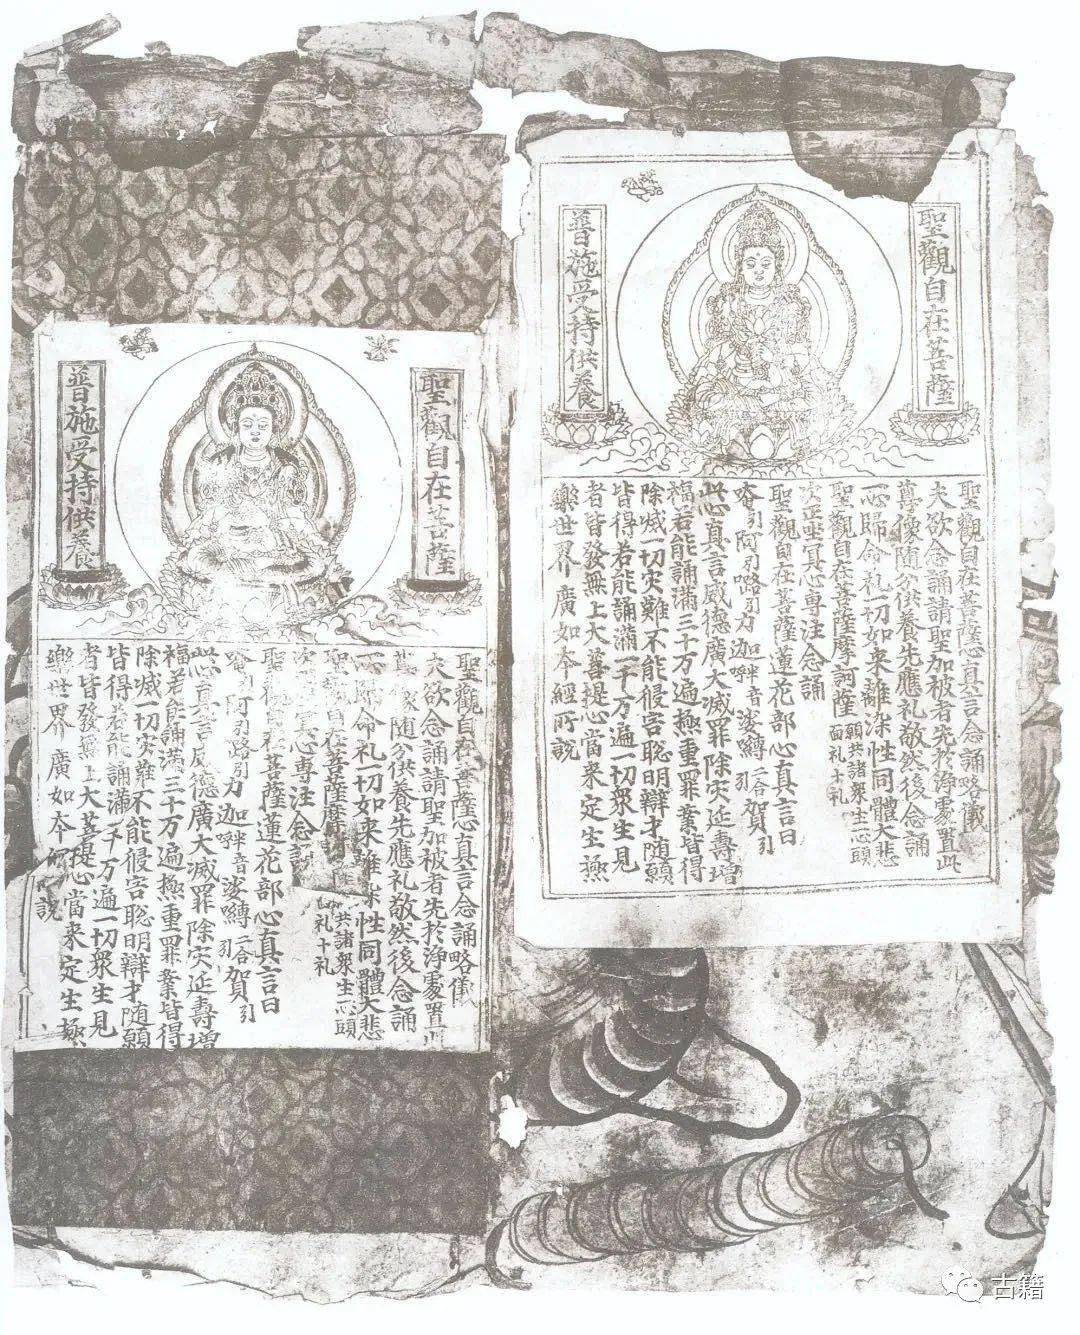 聖觀自在菩薩
普施受持供養
聖觀自在菩薩心真言念誦略儀
夫欲念誦請聖加被者先於淨處置此
尊像随分供養先應礼敬然後念誦
一心歸命礼一切如来離染性同體大悲
聖觀自在菩薩摩訶薩願共諸衆生一心頭面礼十礼
次正坐冥心專注念誦
聖觀自在菩薩蓮花部心真言曰
唵引阿引嚕引力迦畔音娑縛二合引賀引
此心真言威德廣大滅罪除灾延壽增
福若能誦满三十万遍極重罪業皆得
除滅一切灾難不能侵害聡明辯才随願
皆得若能誦满一千万遍一切衆生見
者皆發無上大菩提心當来定生極
樂世界廣如夲經所說
聖觀自在菩薩
普施受持供養
聖觀自在菩薩心真言念誦略儀
夫欲念誦請聖加被者先於淨處置此
像随分供養先應礼敬然後念誦
心歸命礼一切如来離染性同體大悲
聖觀自在菩薩摩訶共諸衆生一心頭面礼十礼
次冥心專注念誦
聖觀自在菩薩蓮花部心真言曰
唵引阿引嚕引力迦畔音娑縛二合引賀引
此心真言威德廣大滅罪除灾延壽增
福若能誦满三十万遍極重罪業皆得
除滅一切灾難不能侵害聡明辯才随願
皆得若能誦满一千万遍一切衆生見
者皆發無上大菩提心當来定生極
樂世界廣如夲所說
古籍